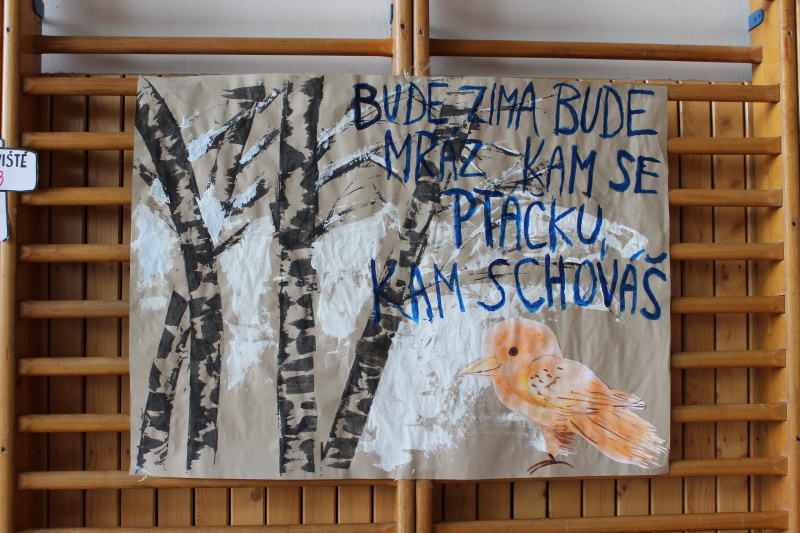 BUDE ZIMA BUDE
MRÁZ KAM SE
PTÁČKU,
KAM SCHOVÁŠ
VIŠTĚ
3